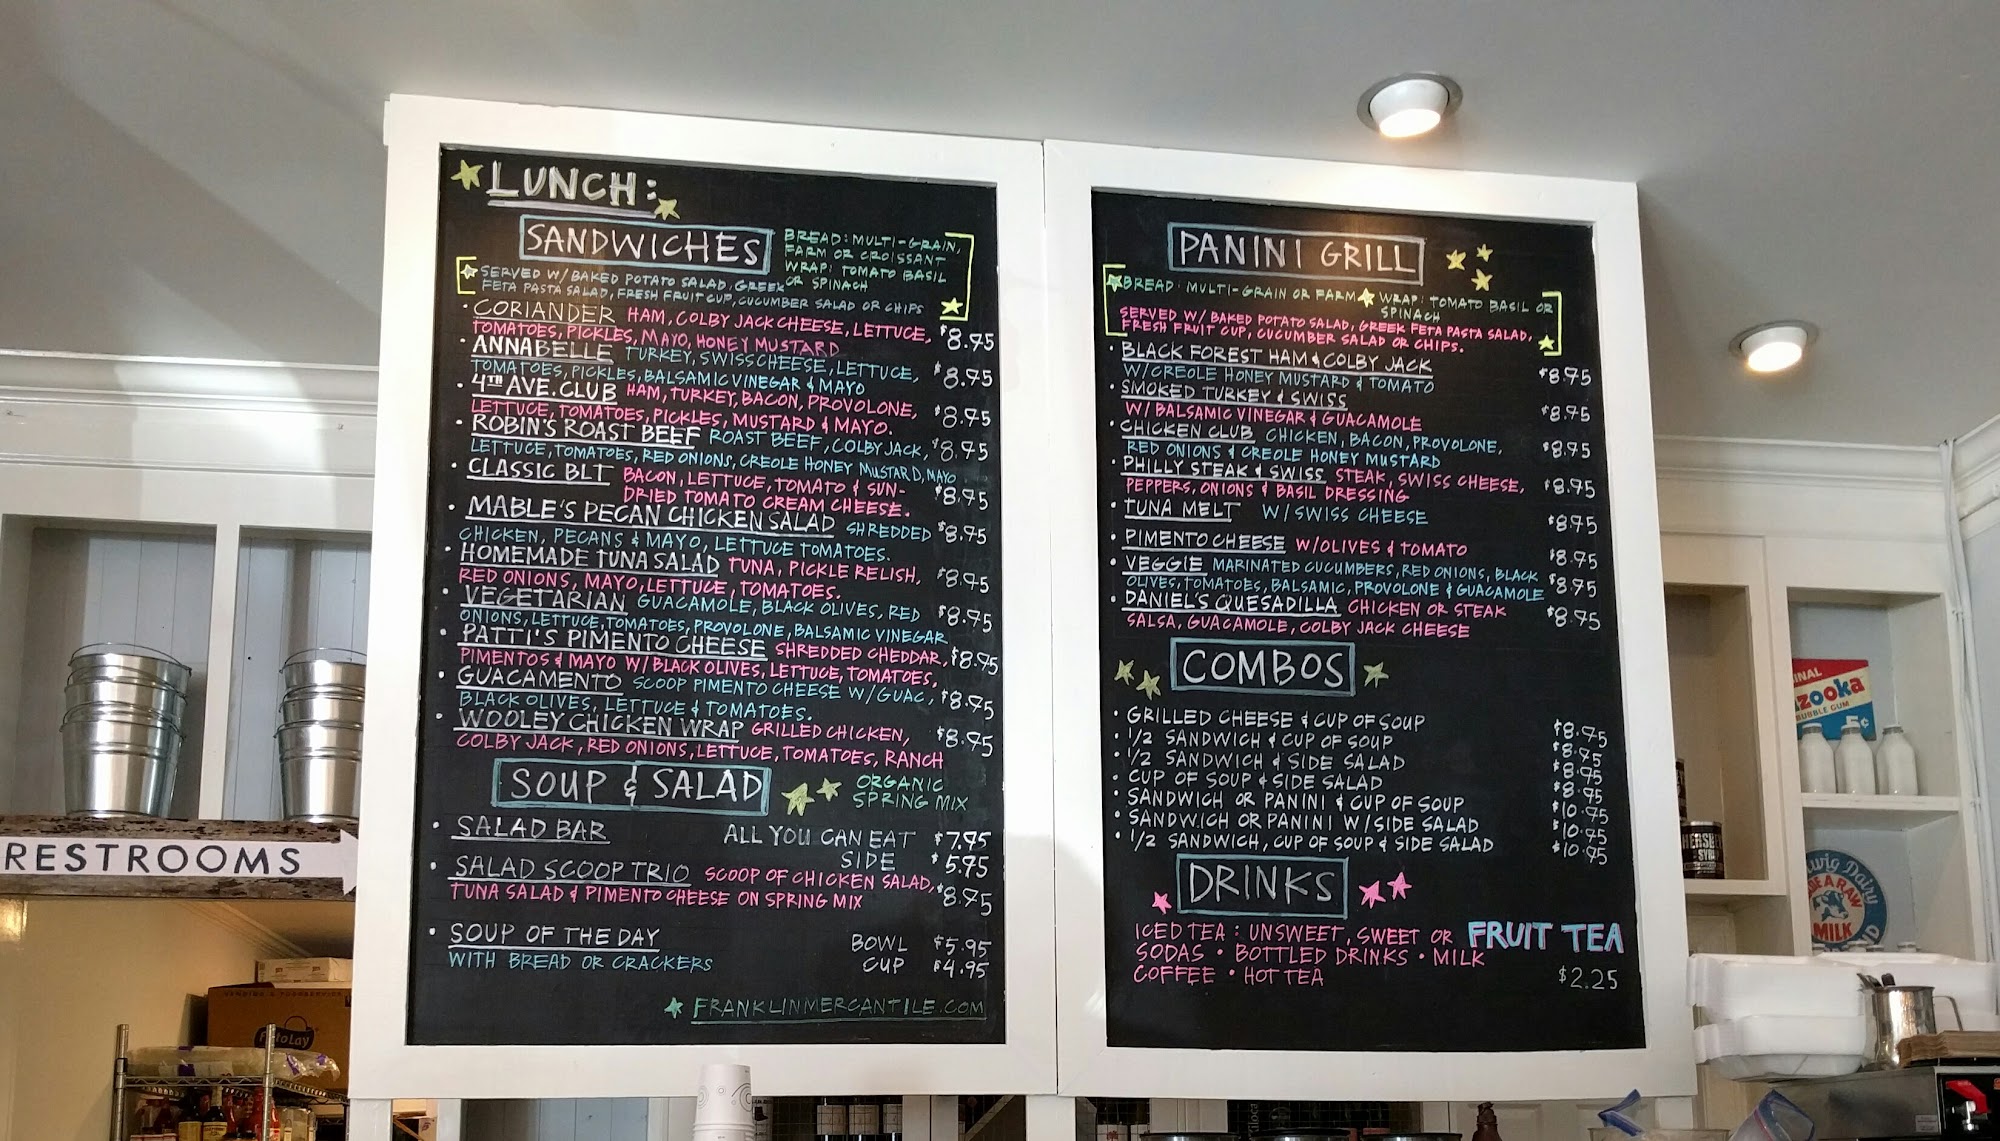 LUNCH:
SANDWICHES
BREAD: MULTI-GRAIN,
FARM OR CROISSANT
WRAP: TOMATO BASIL
OR SPINACH
SERVED W/ BAKED POTATO SALAD, GREEK
FETA PASTA SALAD, FRESH FRUIT CUP, CUCUMBER SALAD OR CHIPS
• CORIANDER HAM, COLBY JACK CHEESE, LETTUCE,
TOMATOES, PICKLES, MAYO, HONEY MUSTARD $8.95
• ANNABELLE TURKEY, SWISS CHEESE, LETTUCE,
TOMATOES, PICKLES, BALSAMIC VINEGAR & MAYO $8.95
• 4TH AVE. CLUB HAM, TURKEY, BACON, PROVOLONE,
LETTUCE, TOMATOES, PICKLES, MUSTARD & MAYO. $8.95
• ROBIN'S ROAST BEEF ROAST BEEF, COLBY JACK, $8.95
LETTUCE, TOMATOES, RED ONIONS, CREOLE HONEY MUSTARD, MAYO
• CLASSIC BLT BACON, LETTUCE, TOMATO & SUN-
DRIED TOMATO CREAM CHEESE. $8.95
• MABLE'S PECAN CHICKEN SALAD SHREDDED $8.95
CHICKEN, PECANS & MAYO, LETTUCE TOMATOES.
• HOMEMADE TUNA SALAD TUNA, PICKLE RELISH, $8.95
RED ONIONS, MAYO, LETTUCE, TOMATOES.
• VEGETARIAN GUACAMOLE, BLACK OLIVES, RED $8.95
ONIONS, LETTUCE, TOMATOES, PROVOLONE, BALSAMIC VINEGAR
• PATTI'S PIMENTO CHEESE SHREDDED CHEDDAR, $8.95
PIMENTOS & MAYO W/ BLACK OLIVES, LETTUCE, TOMATOES,
• GUACAMENTO SCOOP PIMENTO CHEESE W/ GUAC, $8.95
BLACK OLIVES, LETTUCE & TOMATOES.
• WOOLEY CHICKEN WRAP GRILLED CHICKEN, $8.95
COLBY JACK, RED ONIONS, LETTUCE, TOMATOES, RANCH
SOUP & SALAD
ORGANIC
SPRING MIX
• SALAD BAR ALL YOU CAN EAT $7.95
SIDE $5.95
• SALAD SCOOP TRIO SCOOP OF CHICKEN SALAD, $8.95
TUNA SALAD & PIMENTO CHEESE ON SPRING MIX
• SOUP OF THE DAY BOWL $5.95
WITH BREAD OR CRACKERS CUP $4.95
FRANKLINMERCANTILE.COM
PANINI GRILL
BREAD: MULTI-GRAIN OR FARM WRAP: TOMATO BASIL OR
SPINACH
SERVED W/ BAKED POTATO SALAD, GREEK FETA PASTA SALAD,
FRESH FRUIT CUP, CUCUMBER SALAD OR CHIPS.
• BLACK FOREST HAM & COLBY JACK $8.95
W/ CREOLE HONEY MUSTARD & TOMATO
• SMOKED TURKEY & SWISS $8.95
W/ BALSAMIC VINEGAR & GUACAMOLE
• CHICKEN CLUB CHICKEN, BACON, PROVOLONE, $8.95
RED ONIONS & CREOLE HONEY MUSTARD
• PHILLY STEAK & SWISS STEAK, SWISS CHEESE, $8.95
PEPPERS, ONIONS & BASIL DRESSING
• TUNA MELT W/ SWISS CHEESE $8.95
• PIMENTO CHEESE W/ OLIVES & TOMATO $8.95
• VEGGIE MARINATED CUCUMBERS, RED ONIONS, BLACK $8.95
OLIVES, TOMATOES, BALSAMIC, PROVOLONE & GUACAMOLE
• DANIEL'S QUESADILLA CHICKEN OR STEAK $8.95
SALSA, GUACAMOLE, COLBY JACK CHEESE
COMBOS
• GRILLED CHEESE & CUP OF SOUP $8.95
• 1/2 SANDWICH & CUP OF SOUP $8.95
• 1/2 SANDWICH & SIDE SALAD $8.95
• CUP OF SOUP & SIDE SALAD $8.95
• SANDWICH OR PANINI & CUP OF SOUP $10.95
• SANDWICH OR PANINI W/ SIDE SALAD $10.95
• 1/2 SANDWICH, CUP OF SOUP & SIDE SALAD $10.95
DRINKS
ICED TEA: UNSWEET, SWEET OR FRUIT TEA
SODAS • BOTTLED DRINKS • MILK
COFFEE • HOT TEA $2.25
RESTROOMS
BUBBLE GUM
5¢
MILK